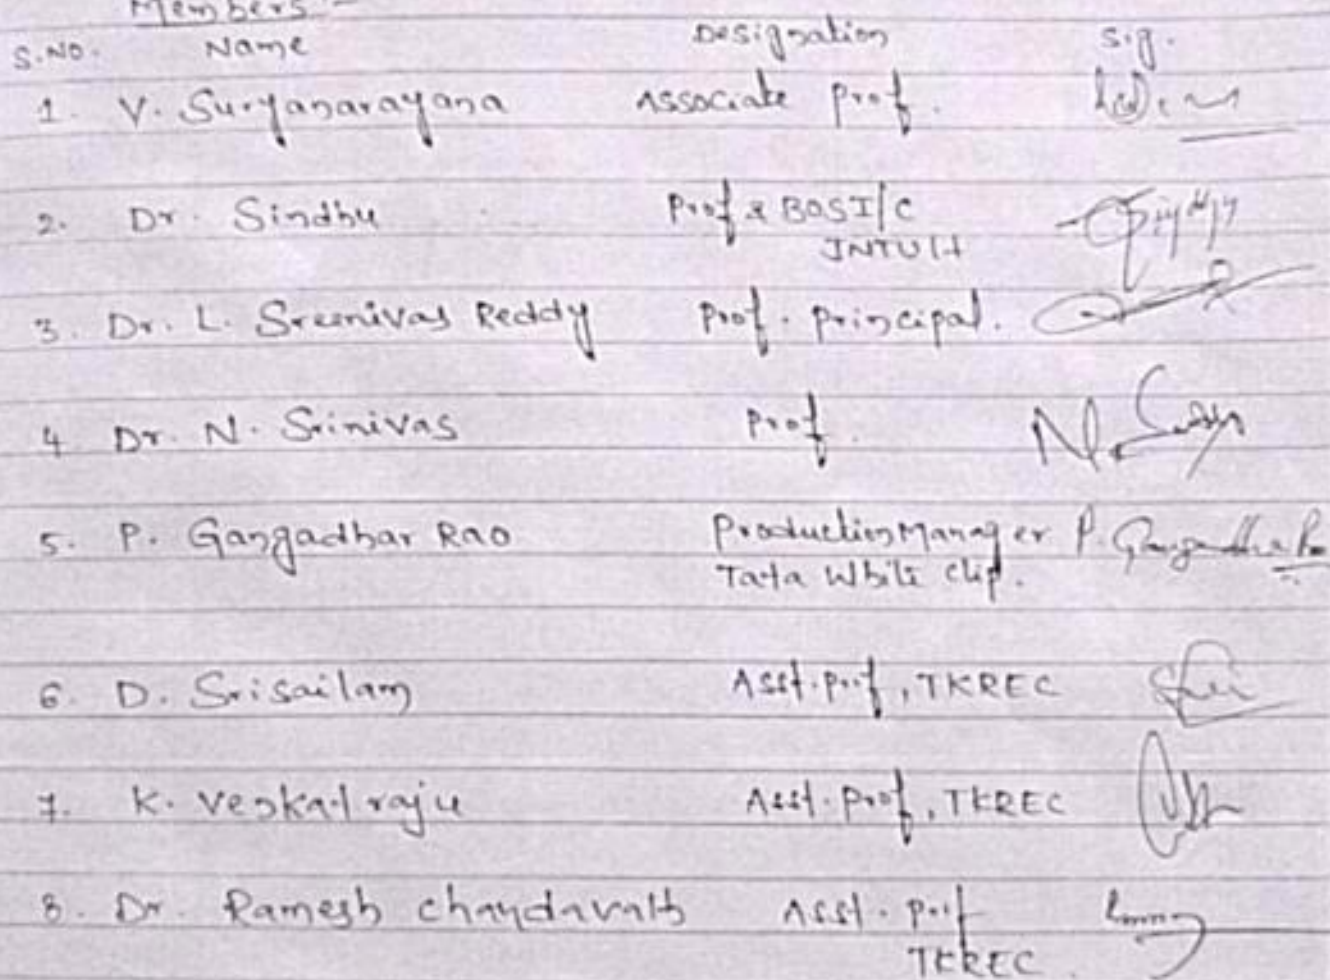 Members -
S.No. Name Designation Sig.
1. V. Suryanarayana Associate Prof.
2. Dr. Sindhu Prof & BOS I/C
JNTUH
3. Dr. L. Sreenivas Reddy Prof. Principal.
4 Dr. N. Srinivas Prof.
5. P. Gangadhar Rao Production Manager P. Gangadhar Rao
Tata White Chip.
6. D. Srisailam Asst. Prof, TKREC
7. K. Venkat raju Asst. Prof, TKREC
8. Dr. Ramesh Chandavath Asst. Prof
TKREC